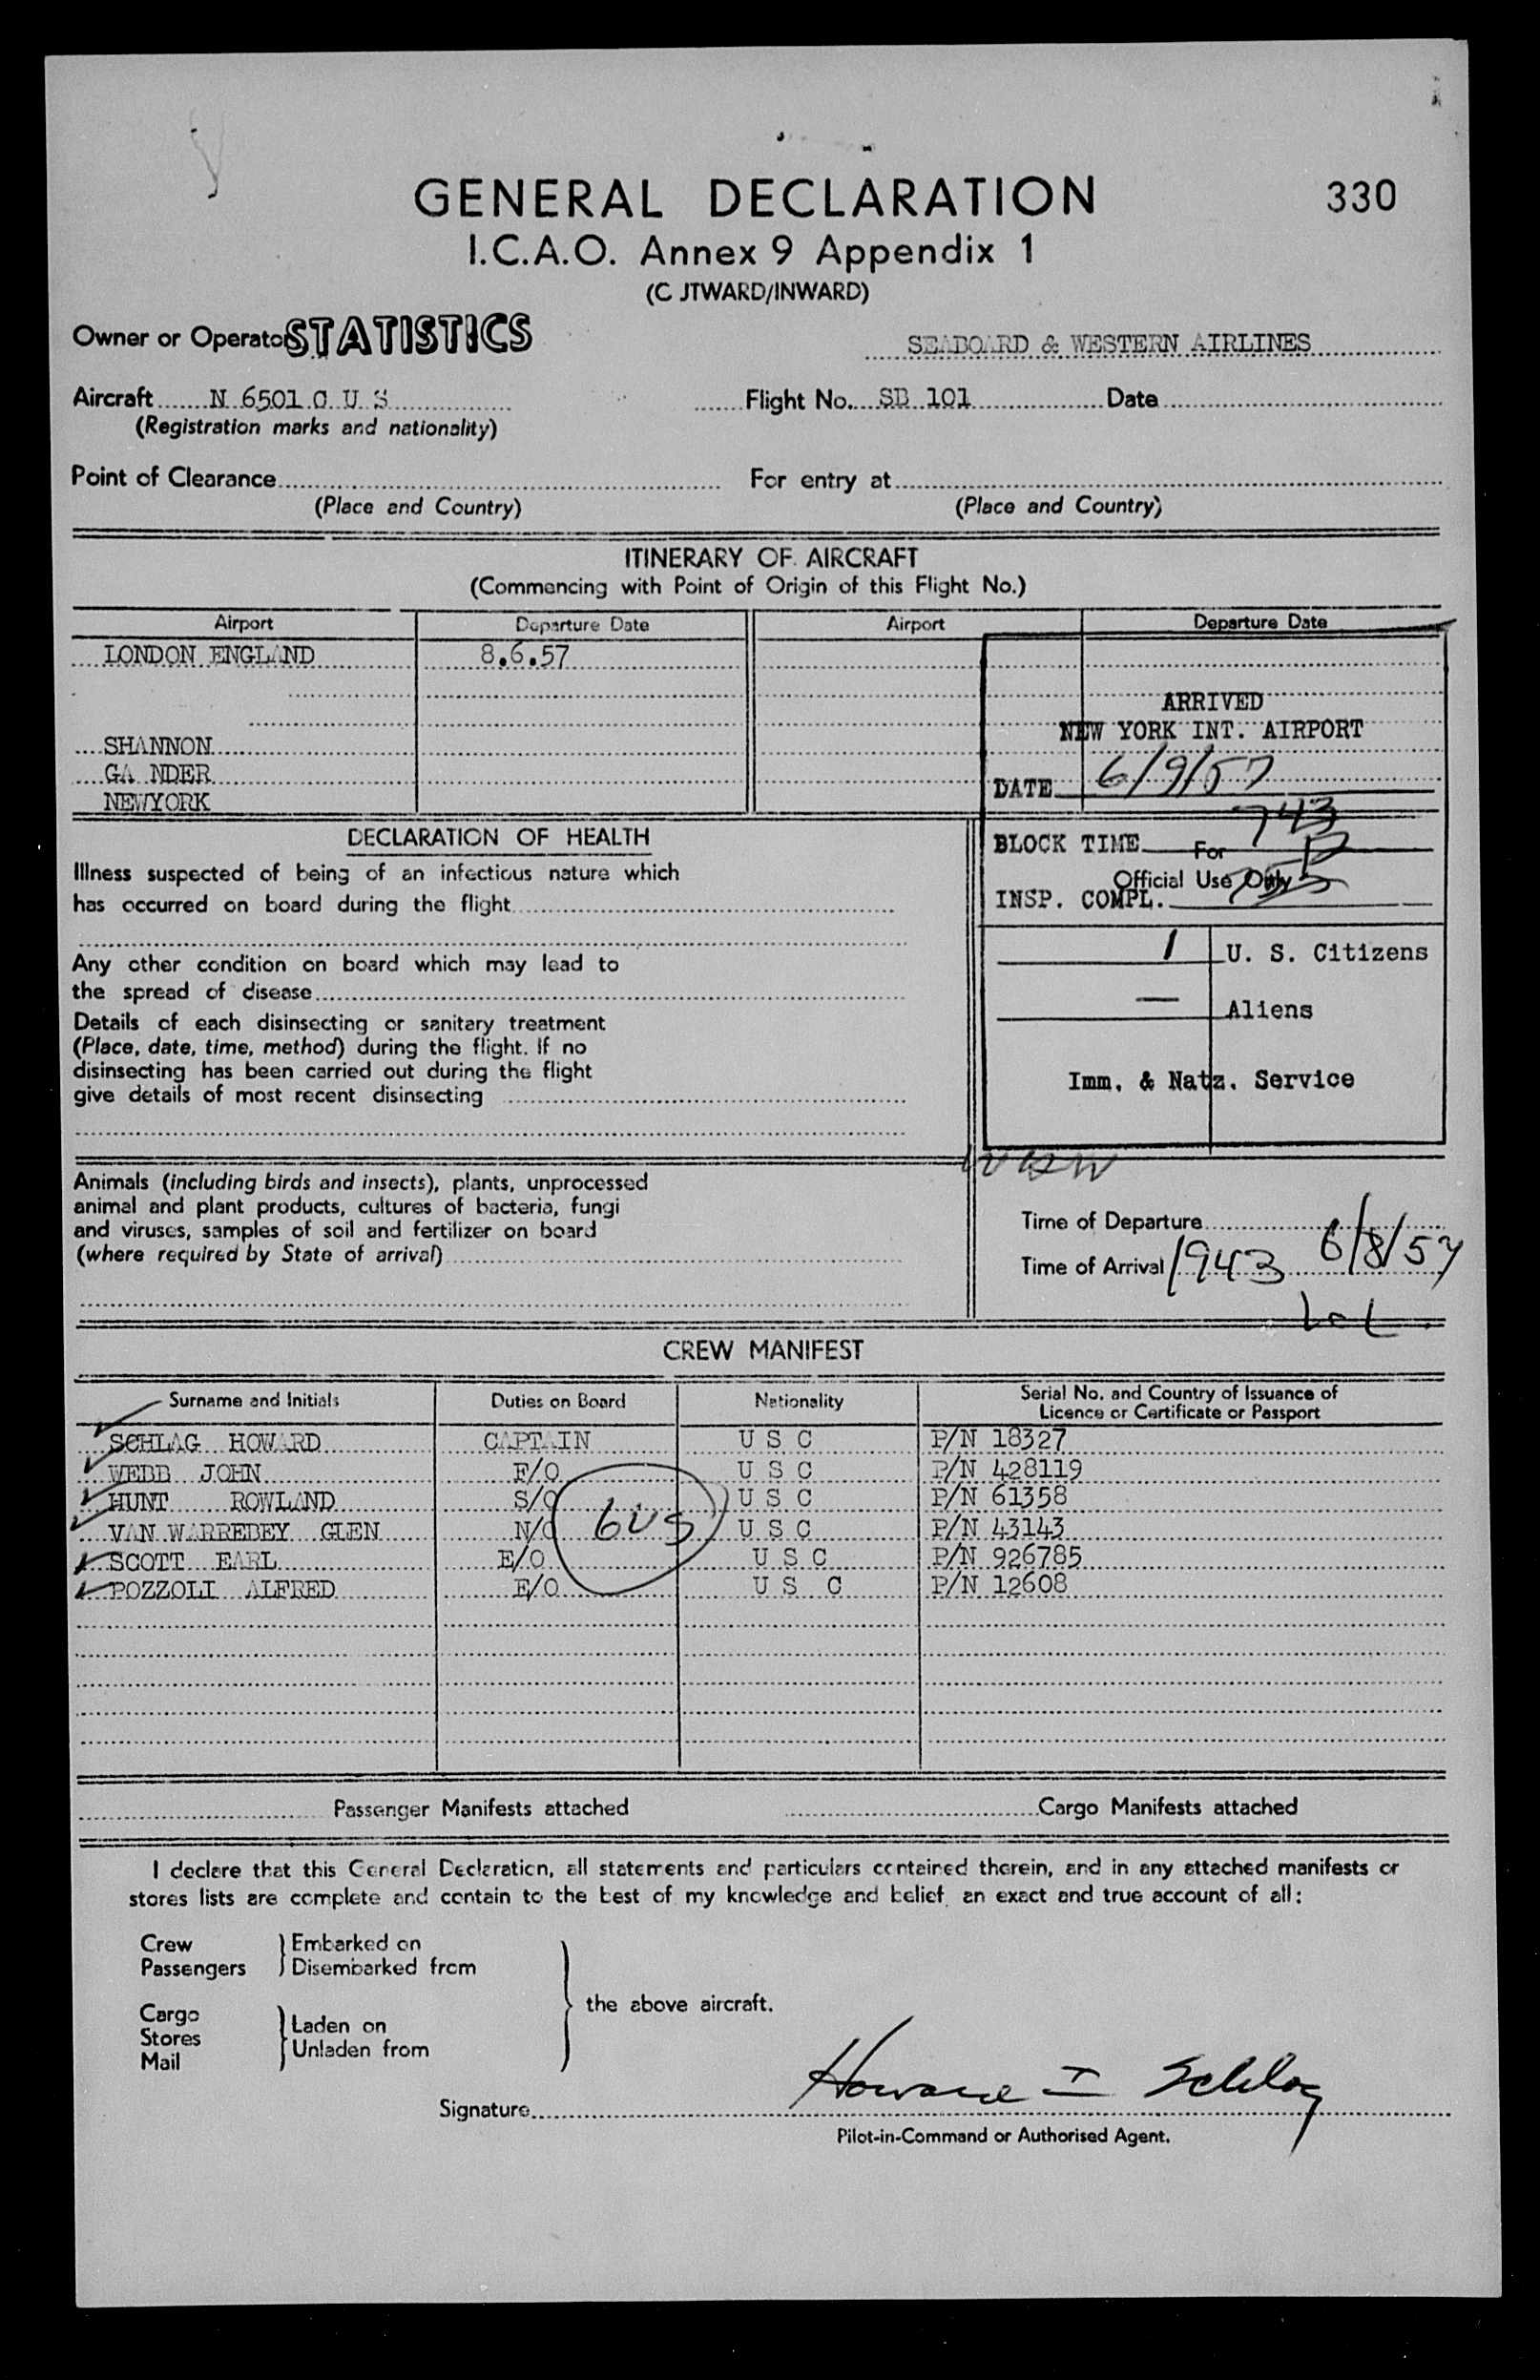 GENERAL DECLARATION 330
I.C.A.O. Annex 9 Appendix 1
(C JTWARD/INWARD)
Owner or Operato STATISTICS SEABOARD & WESTERN AIRLINES
Aircraft N 6501 C U S Flight No. SB 101 Date
(Registration marks and nationality)
Point of Clearance For entry at
(Place and Country) (Place and Country)
ITINERARY OF AIRCRAFT
(Commencing with Point of Origin of this Flight No.)
Airport Departure Date Airport Departure Date
LONDON ENGLAND 8.6.57
ARRIVED
NEW YORK INT. AIRPORT
SHANNON
GA NDER
DATE 6/9/57
NEWYORK
DECLARATION OF HEALTH
BLOCK TIME 743
For
Official Use Only
INSP. COMPL.
Illness suspected of being of an infectious nature which
has occurred on board during the flight
1 U. S. Citizens
— Aliens
Imm. & Natz. Service
Any other condition on board which may lead to
the spread of disease
Details of each disinsecting or sanitary treatment
(Place, date, time, method) during the flight. If no
disinsecting has been carried out during the flight
give details of most recent disinsecting
Animals (including birds and insects), plants, unprocessed
animal and plant products, cultures of bacteria, fungi
and viruses, samples of soil and fertilizer on board
(where required by State of arrival)
Time of Departure
Time of Arrival 1943 6/8/57
CREW MANIFEST
Surname and Initials Duties on Board Nationality Serial No. and Country of Issuance of
Licence or Certificate or Passport
SCHLAG HOWARD CAPTAIN U S C P/N 18327
WEBB JOHN F/O U S C P/N 428119
HUNT ROWLAND S/O U S C P/N 61358
VAN WARREBEY GLEN N/O 6US U S C P/N 43143
SCOTT EARL E/O U S C P/N 926785
POZZOLI ALFRED E/O U S C P/N 12608
Passenger Manifests attached Cargo Manifests attached
I declare that this General Declaration, all statements and particulars contained therein, and in any attached manifests or
stores lists are complete and contain to the best of my knowledge and belief an exact and true account of all:
Crew Embarked on
Passengers Disembarked from
the above aircraft.
Cargo
Stores Laden on
Mail Unladen from
Signature Howard I Schlag
Pilot-in-Command or Authorised Agent.